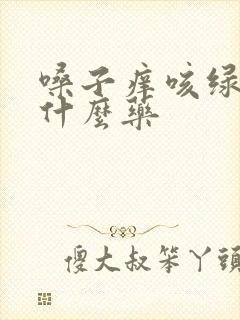 嗓子痒咳绿
什麼藥
傻大叔笨丫頭